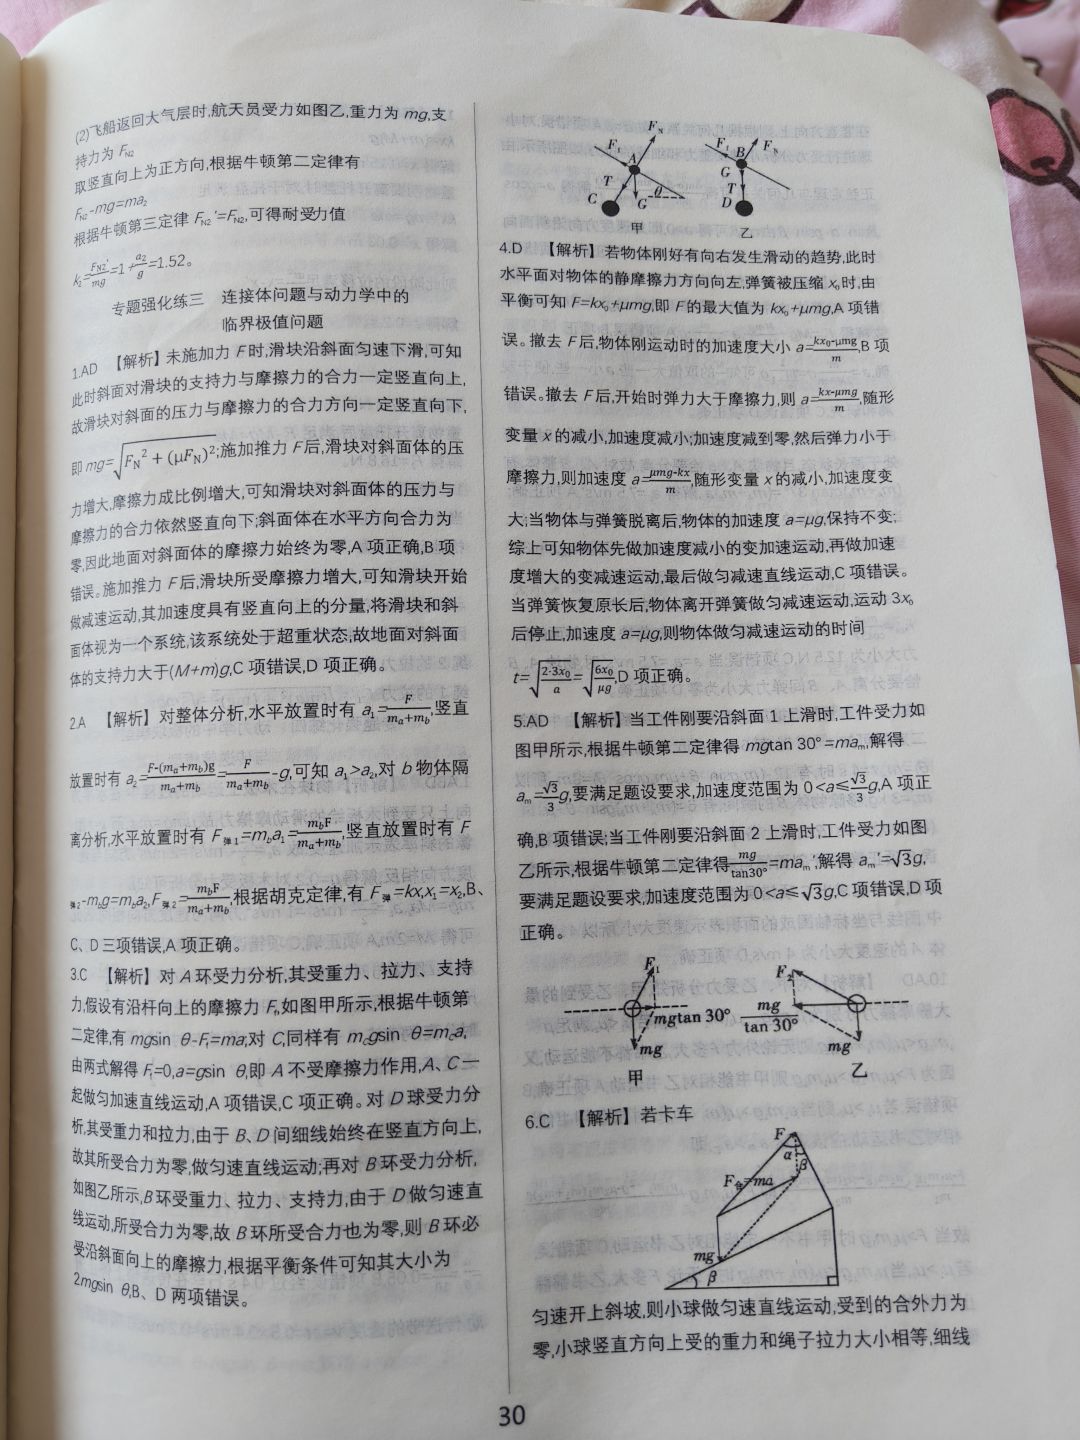 (2)飞船返回大气层时,航天员受力如图乙,重力为 mg,支
持力为 F_N2
取竖直向上为正方向,根据牛顿第二定律有
F_N2-mg=ma₂
根据牛顿第三定律 F_N2'=F_N2,可得耐受力值
k₂=F_N2'/mg=1+a₂/g=1.52。
专题强化练三 连接体问题与动力学中的
临界极值问题
1.AD 【解析】未施加力 F 时,滑块沿斜面匀速下滑,可知
此时斜面对滑块的支持力与摩擦力的合力一定竖直向上,
故滑块对斜面的压力与摩擦力的合力方向一定竖直向下,
即 mg=√(F_N²+(μF_N)²);施加推力 F 后,滑块对斜面体的压
力增大,摩擦力成比例增大,可知滑块对斜面体的压力与
摩擦力的合力依然竖直向下;斜面体在水平方向合力为
零,因此地面对斜面体的摩擦力始终为零,A 项正确,B 项
错误。施加推力 F 后,滑块所受摩擦力增大,可知滑块开始
做减速运动,其加速度具有竖直向上的分量,将滑块和斜
面体视为一个系统,该系统处于超重状态,故地面对斜面
体的支持力大于(M+m)g,C 项错误,D 项正确。
2.A 【解析】对整体分析,水平放置时有 a₁=F/(m_a+m_b),竖直
放置时有 a₂=(F-(m_a+m_b)g)/(m_a+m_b)=F/(m_a+m_b)-g,可知 a₁>a₂,对 b 物体隔
离分析,水平放置时有 F弹1=m_b a₁=m_bF/(m_a+m_b),竖直放置时有 F
弹2-m_b g=m_b a₂,F弹2=m_bF/(m_a+m_b),根据胡克定律,有 F弹=kx,x₁=x₂,B、
C、D 三项错误,A 项正确。
3.C 【解析】对 A 环受力分析,其受重力、拉力、支持
力,假设有沿杆向上的摩擦力 F_f,如图甲所示,根据牛顿第
二定律,有 mgsin θ-F_f=ma,对 C,同样有 m_C gsin θ=m_C a,
由两式解得 F_f=0,a=gsin θ,即 A 不受摩擦力作用,A、C 一
起做匀加速直线运动,A 项错误,C 项正确。对 D 球受力分
析,其受重力和拉力,由于 B、D 间细线始终在竖直方向上,
故其所受合力为零,做匀速直线运动;再对 B 环受力分析,
如图乙所示,B 环受重力、拉力、支持力,由于 D 做匀速直
线运动,所受合力为零,故 B 环所受合力也为零,则 B 环必
受沿斜面向上的摩擦力,根据平衡条件可知其大小为
2mgsin θ,B、D 两项错误。
F_N
F_f A
T
C G θ
甲
F_f B F_N
G
T
D
乙
4.D 【解析】若物体刚好有向右发生滑动的趋势,此时
水平面对物体的静摩擦力方向向左,弹簧被压缩 x₀时,由
平衡可知 F=kx₀+μmg,即 F 的最大值为 kx₀+μmg,A 项错
误。撤去 F 后,物体刚运动时的加速度大小 a=(kx₀-μmg)/m,B 项
错误。撤去 F 后,开始时弹力大于摩擦力,则 a=(kx-μmg)/m,随形
变量 x 的减小,加速度减小;加速度减到零,然后弹力小于
摩擦力,则加速度 a=(μmg-kx)/m,随形变量 x 的减小,加速度变
大;当物体与弹簧脱离后,物体的加速度 a=μg,保持不变;
综上可知物体先做加速度减小的变加速运动,再做加速
度增大的变减速运动,最后做匀减速直线运动,C 项错误。
当弹簧恢复原长后,物体离开弹簧做匀减速运动,运动 3x₀
后停止,加速度 a=μg,则物体做匀减速运动的时间
t=√(2·3x₀/a)=√(6x₀/μg),D 项正确。
5.AD 【解析】当工件刚要沿斜面 1 上滑时,工件受力如
图甲所示,根据牛顿第二定律得 mgtan 30°=ma_m,解得
a_m=√3/3 g,要满足题设要求,加速度范围为 0<a≤√3/3 g,A 项正
确,B 项错误;当工件刚要沿斜面 2 上滑时,工件受力如图
乙所示,根据牛顿第二定律得mg/tan30°=ma_m',解得 a_m'=√3g,
要满足题设要求,加速度范围为 0<a≤√3g,C 项错误,D 项
正确。
F₁
mgtan 30°
mg
甲
F₂
mg/tan 30°
mg
乙
6.C 【解析】若卡车
F
α
β
F合=ma
mg
β
匀速开上斜坡,则小球做匀速直线运动,受到的合外力为
零,小球竖直方向上受的重力和绳子拉力大小相等,细线
30